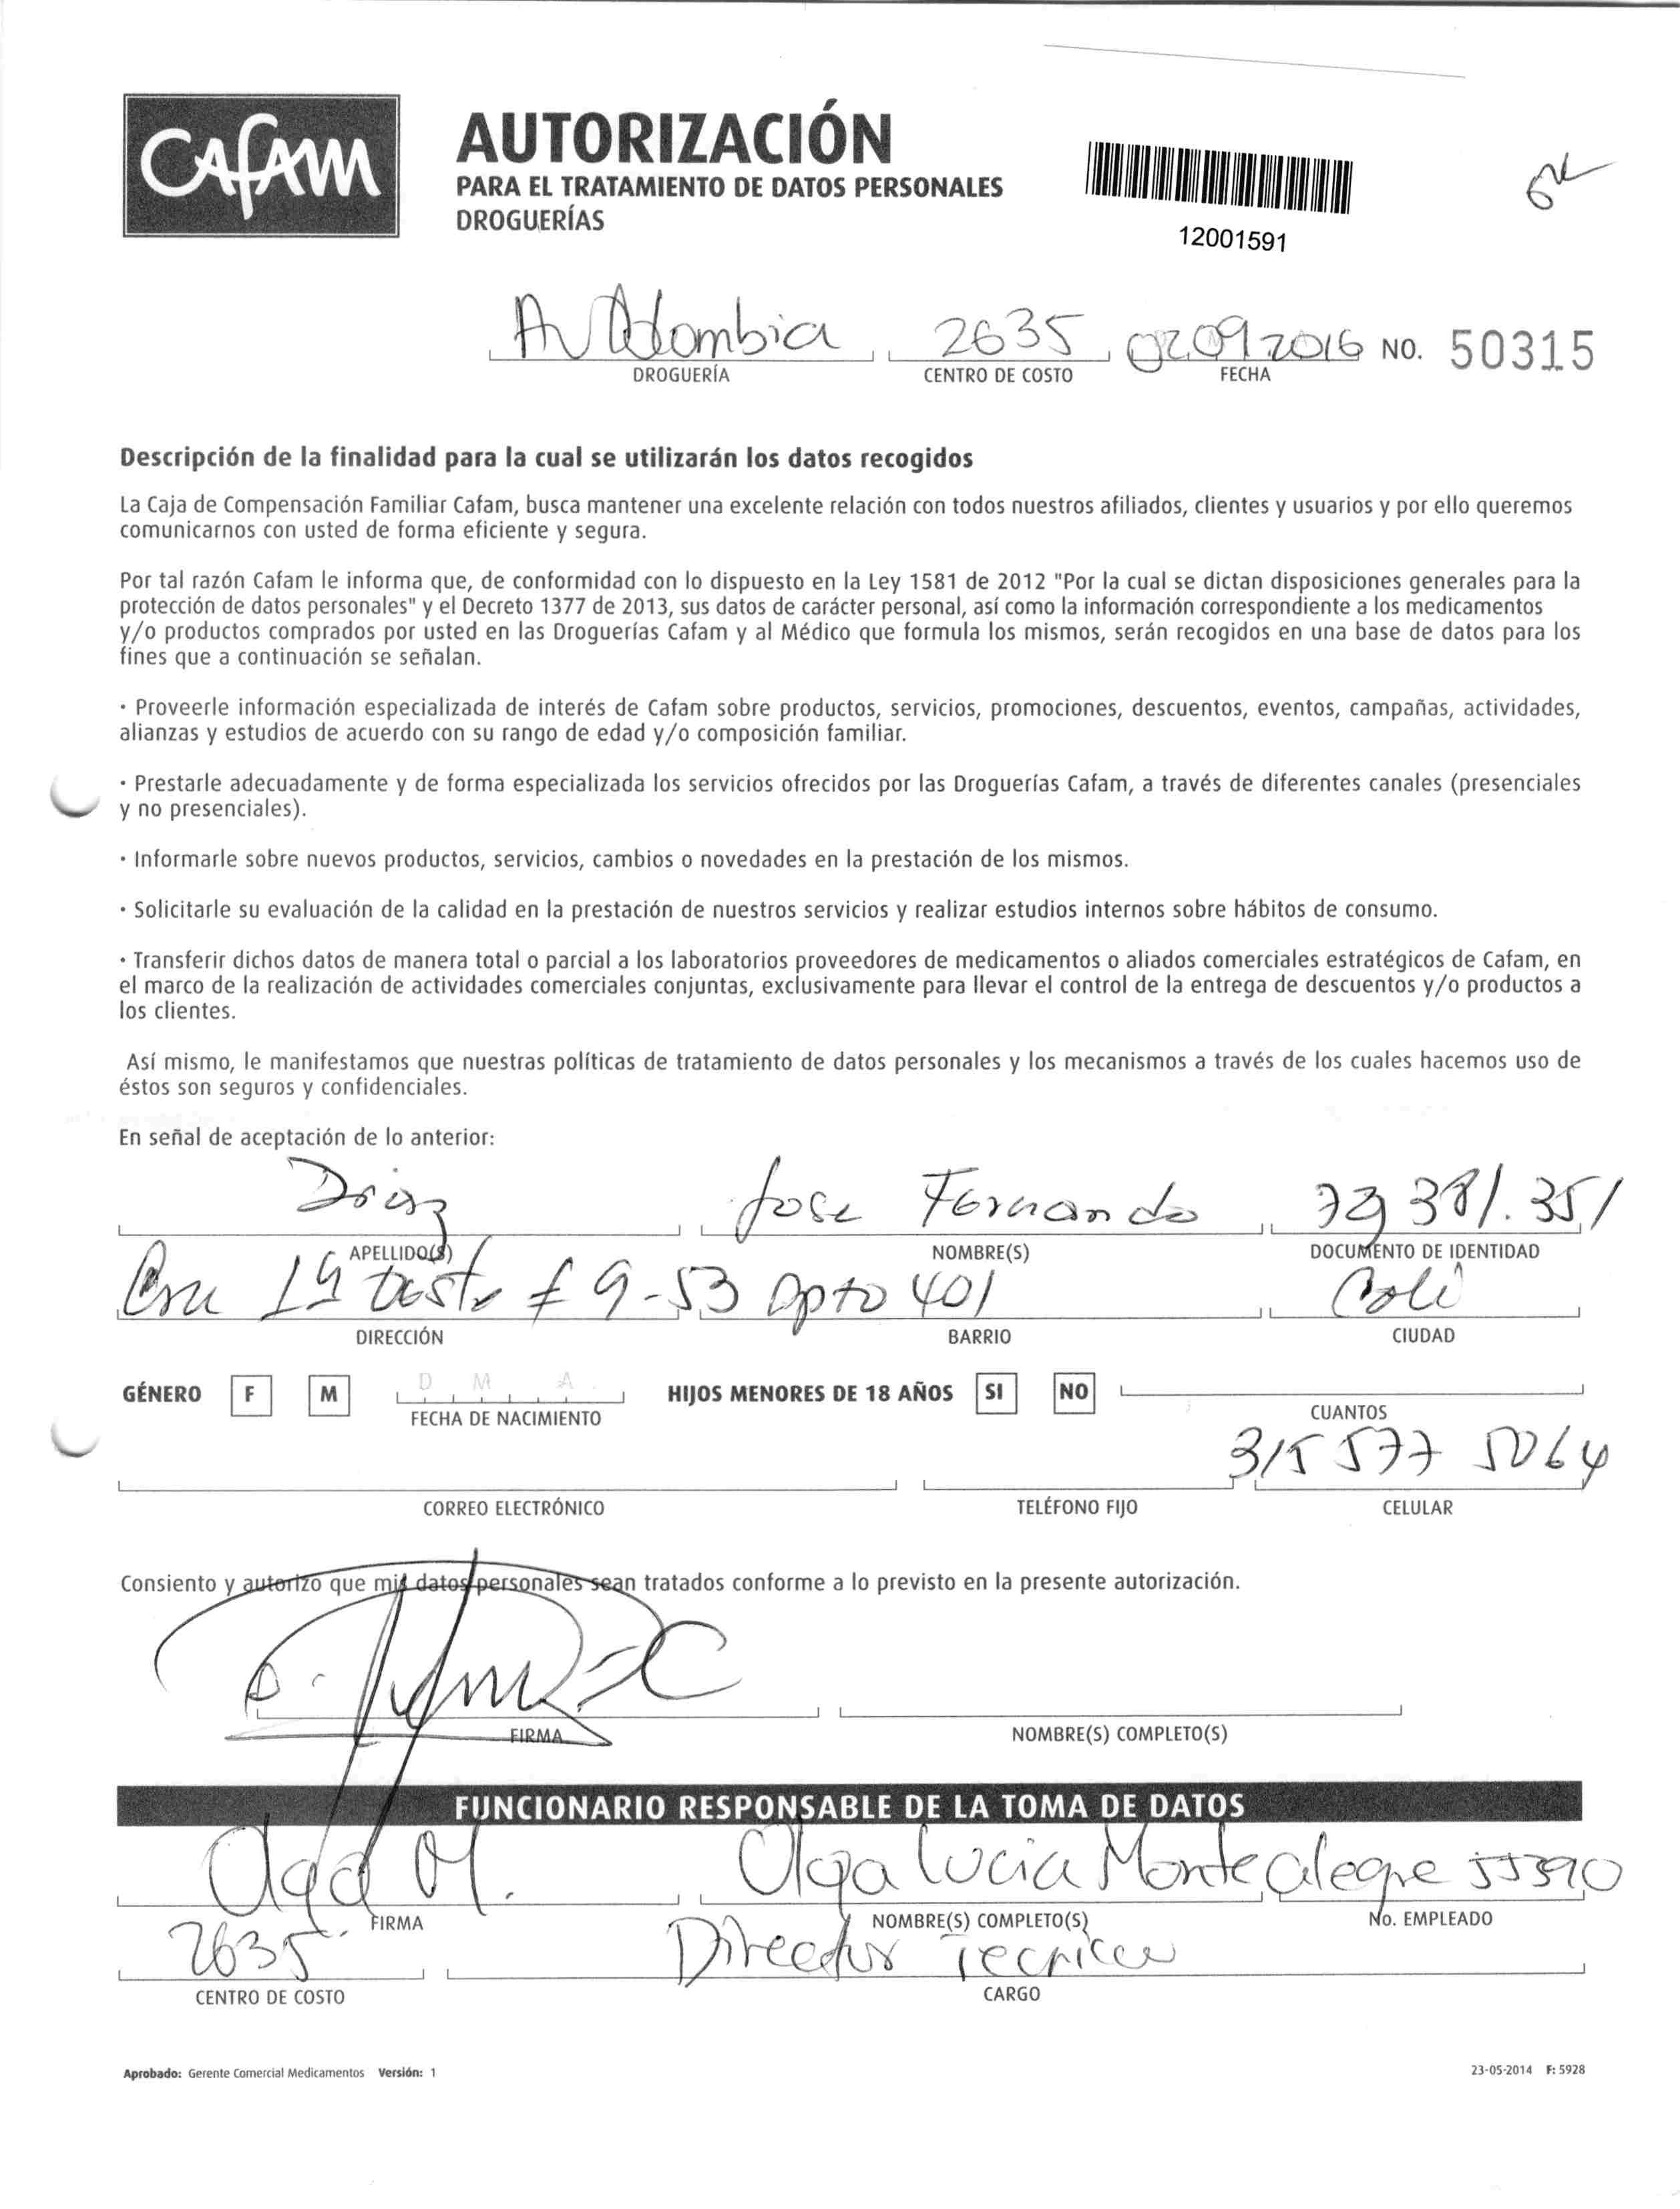 CAFAM
AUTORIZACIÓN
PARA EL TRATAMIENTO DE DATOS PERSONALES
DROGUERÍAS
12001591
Av Colombia 2635 02 09 2016 NO. 50315
DROGUERÍA CENTRO DE COSTO FECHA
Descripción de la finalidad para la cual se utilizarán los datos recogidos
La Caja de Compensación Familiar Cafam, busca mantener una excelente relación con todos nuestros afiliados, clientes y usuarios y por ello queremos
comunicarnos con usted de forma eficiente y segura.
Por tal razón Cafam le informa que, de conformidad con lo dispuesto en la Ley 1581 de 2012 "Por la cual se dictan disposiciones generales para la
protección de datos personales" y el Decreto 1377 de 2013, sus datos de carácter personal, así como la información correspondiente a los medicamentos
y/o productos comprados por usted en las Droguerías Cafam y al Médico que formula los mismos, serán recogidos en una base de datos para los
fines que a continuación se señalan.
· Proveerle información especializada de interés de Cafam sobre productos, servicios, promociones, descuentos, eventos, campañas, actividades,
alianzas y estudios de acuerdo con su rango de edad y/o composición familiar.
· Prestarle adecuadamente y de forma especializada los servicios ofrecidos por las Droguerías Cafam, a través de diferentes canales (presenciales
y no presenciales).
· Informarle sobre nuevos productos, servicios, cambios o novedades en la prestación de los mismos.
· Solicitarle su evaluación de la calidad en la prestación de nuestros servicios y realizar estudios internos sobre hábitos de consumo.
· Transferir dichos datos de manera total o parcial a los laboratorios proveedores de medicamentos o aliados comerciales estratégicos de Cafam, en
el marco de la realización de actividades comerciales conjuntas, exclusivamente para llevar el control de la entrega de descuentos y/o productos a
los clientes.
Así mismo, le manifestamos que nuestras políticas de tratamiento de datos personales y los mecanismos a través de los cuales hacemos uso de
éstos son seguros y confidenciales.
En señal de aceptación de lo anterior:
Diaz Jose Fernando 381.351
APELLIDO(S) NOMBRE(S) DOCUMENTO DE IDENTIDAD
Cra 19 Oeste # 9-53 Apto 401 Cali
DIRECCIÓN BARRIO CIUDAD
GÉNERO F M D M A HIJOS MENORES DE 18 AÑOS SI NO
FECHA DE NACIMIENTO CUANTOS
315 577 5064
CORREO ELECTRÓNICO TELÉFONO FIJO CELULAR
Consiento y autorizo que mis datos personales sean tratados conforme a lo previsto en la presente autorización.
FIRMA NOMBRE(S) COMPLETO(S)
FUNCIONARIO RESPONSABLE DE LA TOMA DE DATOS
Olga M. Olga Lucia Montealegre 55390
FIRMA NOMBRE(S) COMPLETO(S) No. EMPLEADO
2635 Director Tecnico
CENTRO DE COSTO CARGO
Aprobado: Gerente Comercial Medicamentos Versión: 1 23-05-2014 F: 5928